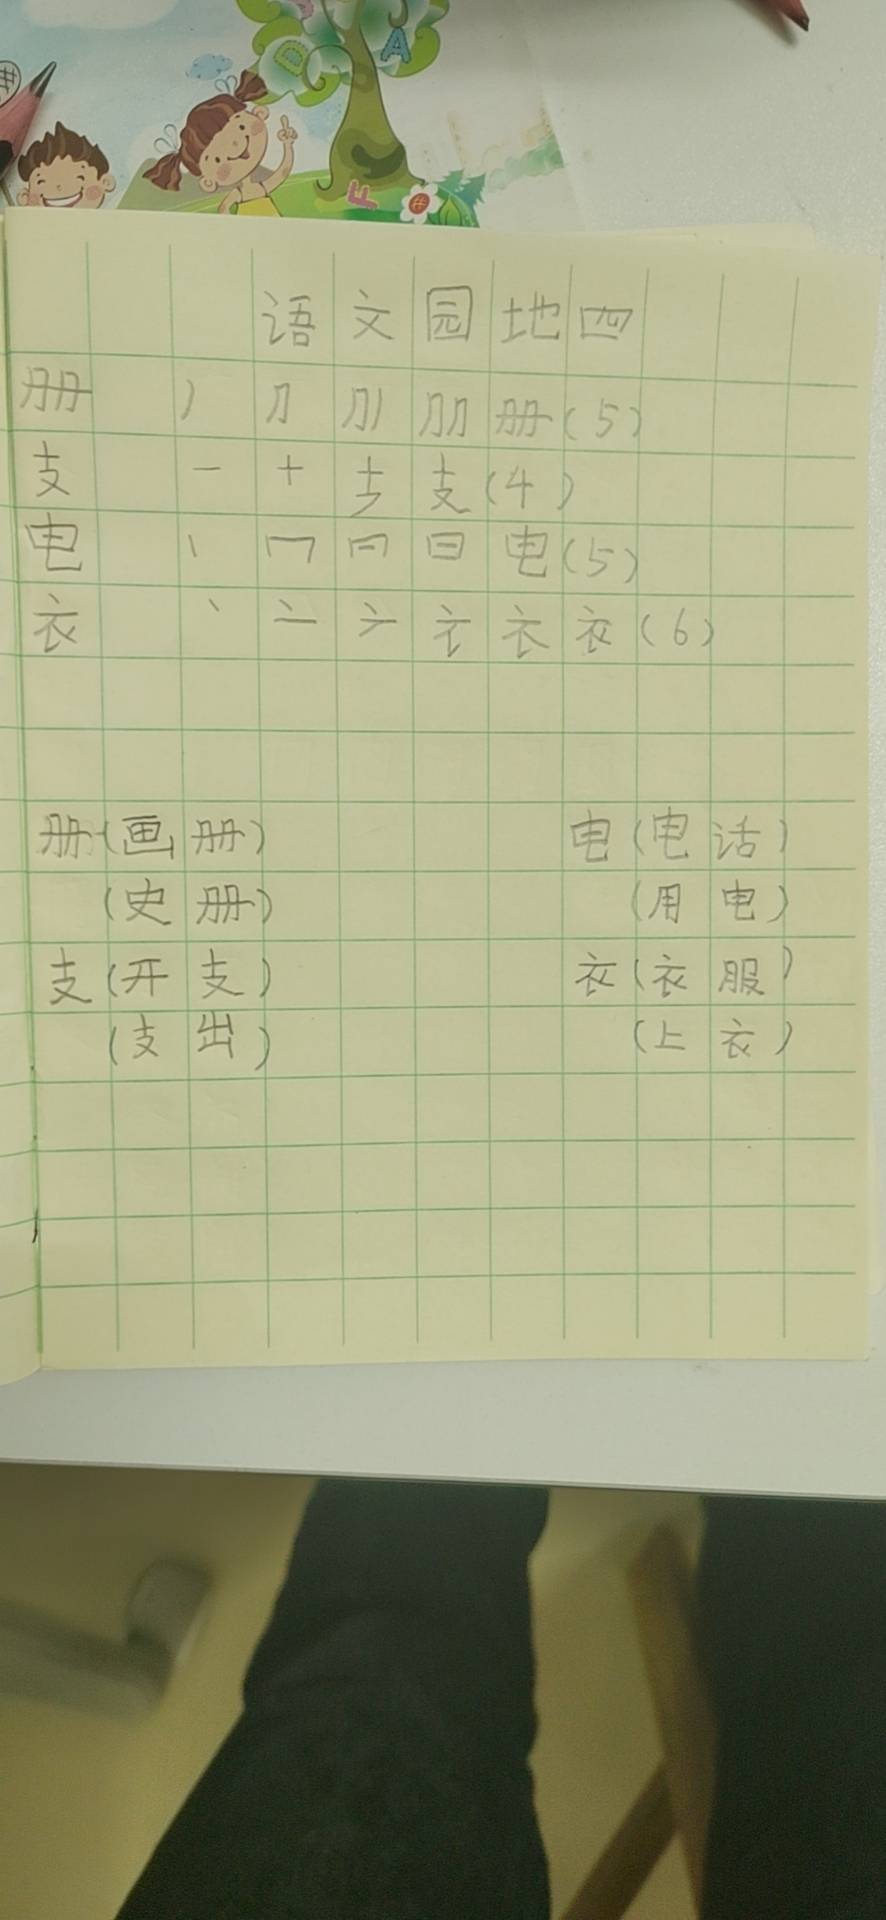 D A
F
语文园地四
册 丿 刀 刀丨 朋 册(5)
支 一 十 支(4)
电 丨 冂 日 电(5)
衣 丶 亠 衣(6)
册(画册) 电(电话)
(史册) (用电)
支(开支) 衣(衣服)
(支出) (上衣)